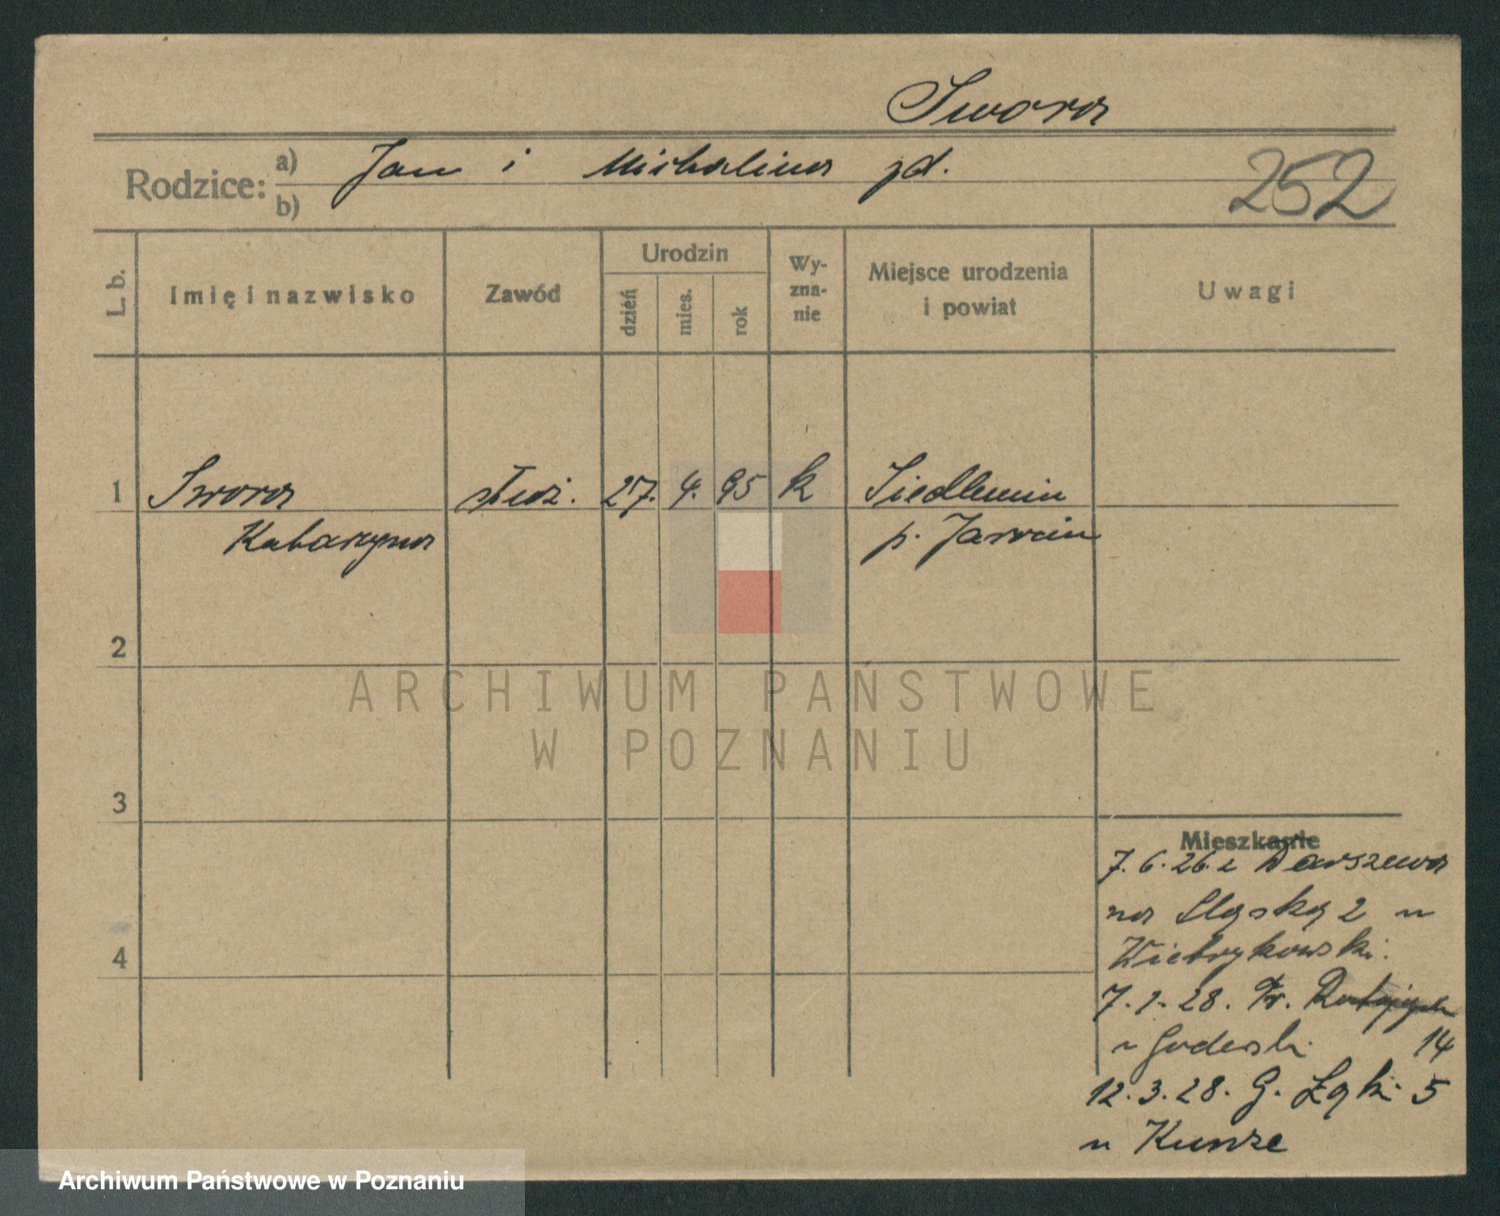 Swora
Rodzice: a) Jan i Michalina zd.
b)
252
L. b.
Imię i nazwisko
Zawód
Urodzin
dzień
mies.
rok
Wy-
zna-
nie
Miejsce urodzenia
i powiat
Uwagi
1 Swora służ. 27. 4. 95 k Siedlemin
Katarzyna p. Jarocin
2
ARCHIWUM PAŃSTWOWE
W POZNANIU
3
Mieszkanie
7. 6. 26. z Darszewa
na Śląską 2 u
4
7. 1. 28. Fr. Ratajczaka
14
12. 3. 28. G. Łąki 5
u Kunze
Archiwum Państwowe w Poznaniu